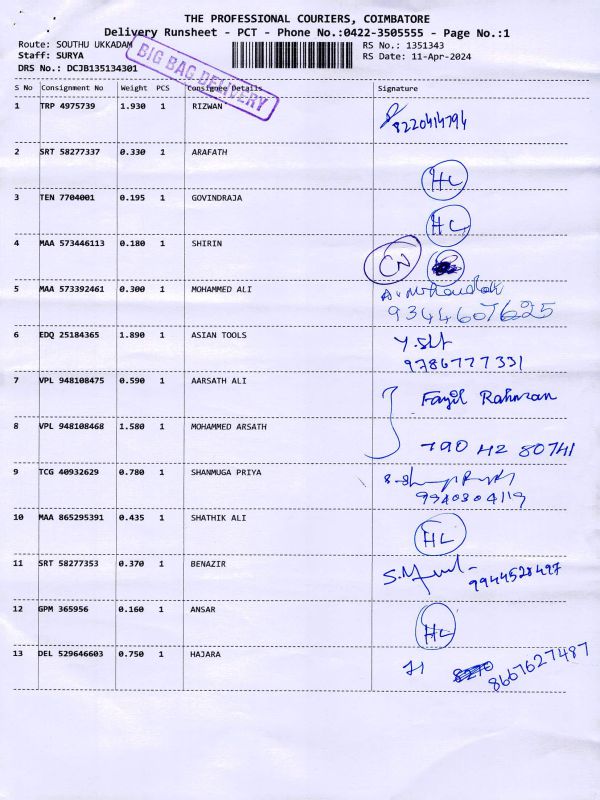 THE PROFESSIONAL COURIERS, COIMBATORE
Delivery Runsheet - PCT - Phone No.:0422-3505555 - Page No.:1
Route: SOUTHU UKKADAM
RS No.: 1351343
Staff: SURYA
RS Date: 11-Apr-2024
DRS No.: DCJB135134301
BIG BAG DELIVERY
S No Consignment No Weight PCS Consignee Details Signature
1 TRP 4975739 1.930 1 RIZWAN 8220414794
2 SRT 58277337 0.330 1 ARAFATH HL
3 TEN 7704001 0.195 1 GOVINDRAJA HL
4 MAA 573446113 0.180 1 SHIRIN CN
5 MAA 573392461 0.300 1 MOHAMMED ALI
9344607625
6 EDQ 25184365 1.890 1 ASIAN TOOLS
9786777331
7 VPL 948108475 0.590 1 AARSATH ALI Fazil Rahman
8 VPL 948108468 1.580 1 MOHAMMED ARSATH
790 42 80741
9 TCG 40932629 0.780 1 SHANMUGA PRIYA
9940304119
10 MAA 865295391 0.435 1 SHATHIK ALI HL
11 SRT 58277353 0.370 1 BENAZIR 9944528497
12 GPM 365956 0.160 1 ANSAR HL
13 DEL 529646603 0.750 1 HAJARA 8667627487